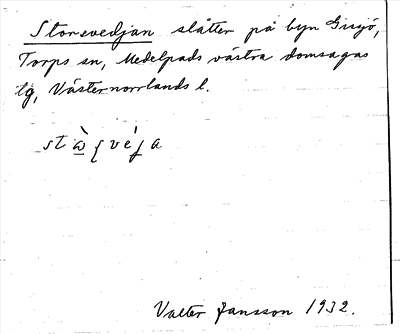 Storsvedjan slåtter på byn Gissjö,
Torps sn, Medelpads västra domsagas
tg, Västernorrlands l.
Valter Jansson 1932.